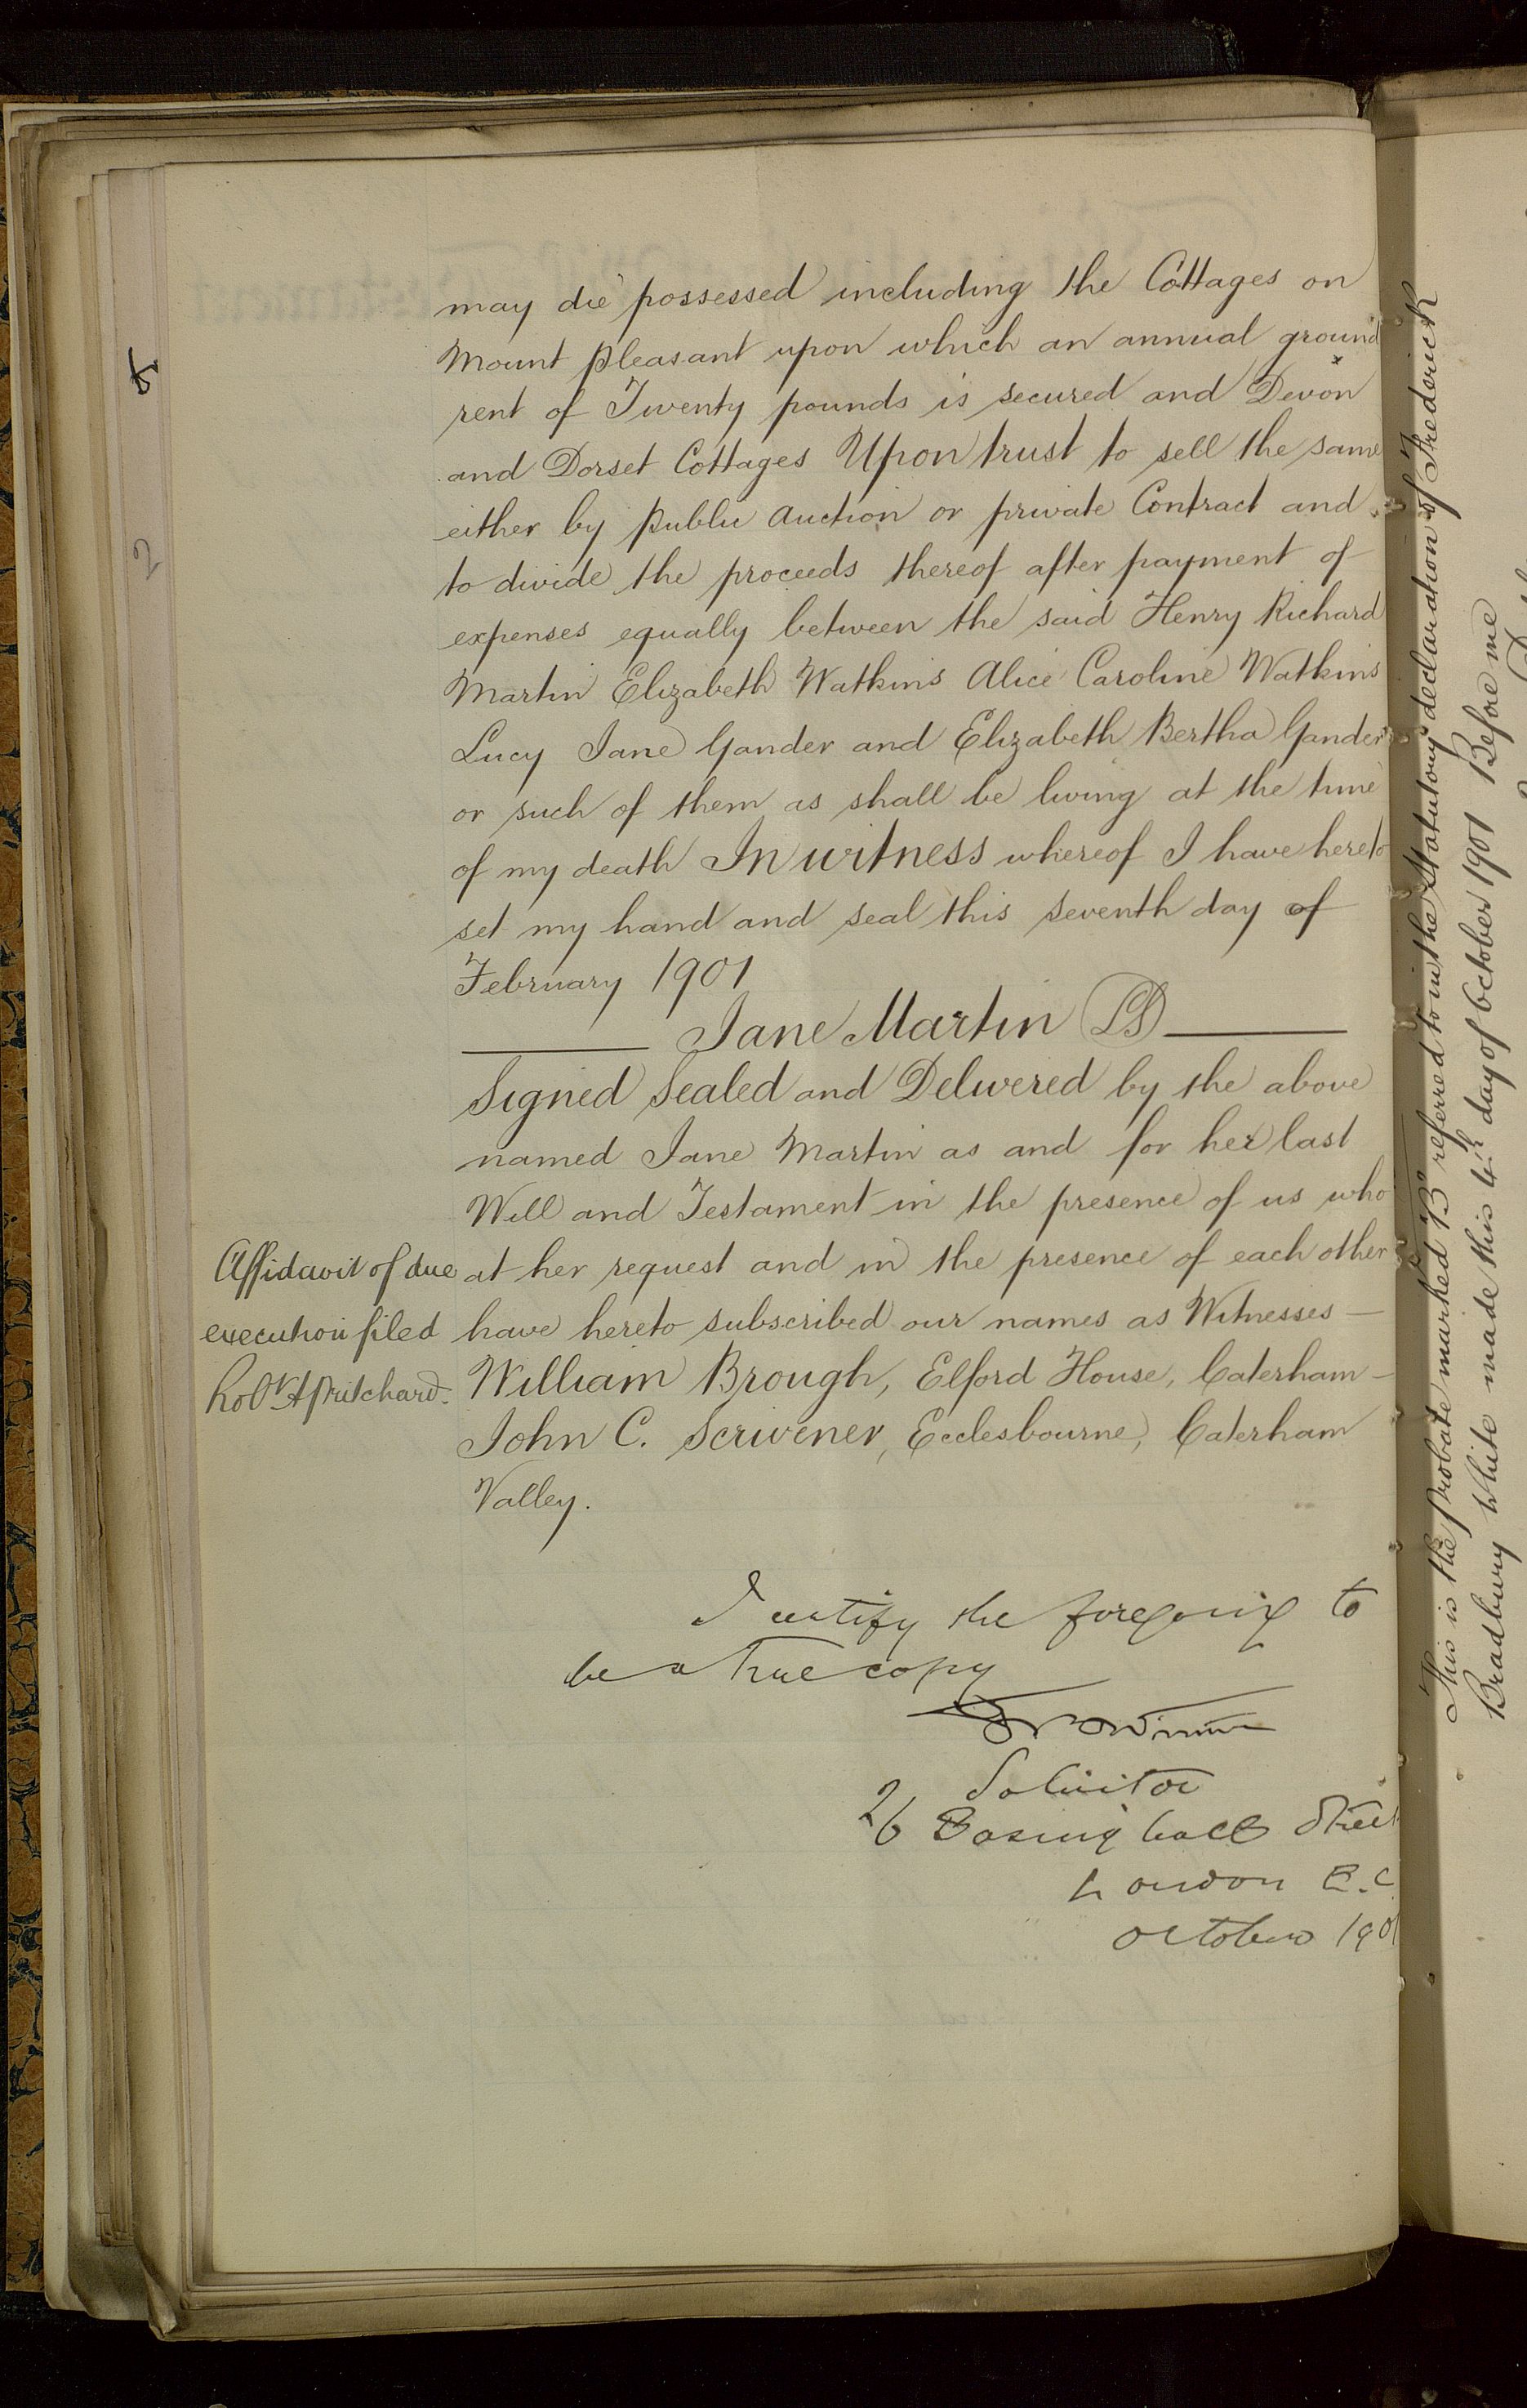 may die possessed including the Cottages on
Mount pleasant upon which an annual ground
rent of Twenty pounds is secured and Devon
and Dorset Cottages Upon trust to sell the same
either by public auction or private Contract and
to divide the proceeds thereof after payment of
expenses equally between the said Henry Richard
Martin Elizabeth Watkins Alice Caroline Watkins
Lucy Jane Gander and Elizabeth Bertha Gander
or such of them as shall be living at the time
of my death In witness whereof I have hereto
set my hand and seal this seventh day of
February 1901
Jane Martin LS
Signed Sealed and Delivered by the above
named Jane Martin as and for her last
Will and Testament in the presence of us who
at her request and in the presence of each other
have hereto subscribed our names as Witnesses —
William Brough, Elford House, Caterham —
John C. Scrivener, Ecclesbourne, Caterham
Valley.
Affidavit of due
execution filed
Robt A Pritchard.
I certify the foregoing to
be a true copy
Solicitor
26 Basinghall Street
London E.C.
October 1901
5
2
This is the probate marked "B" referred to in the Statutory declaration of Frederick
Bradbury White made this 4th day of October 1901 Before me